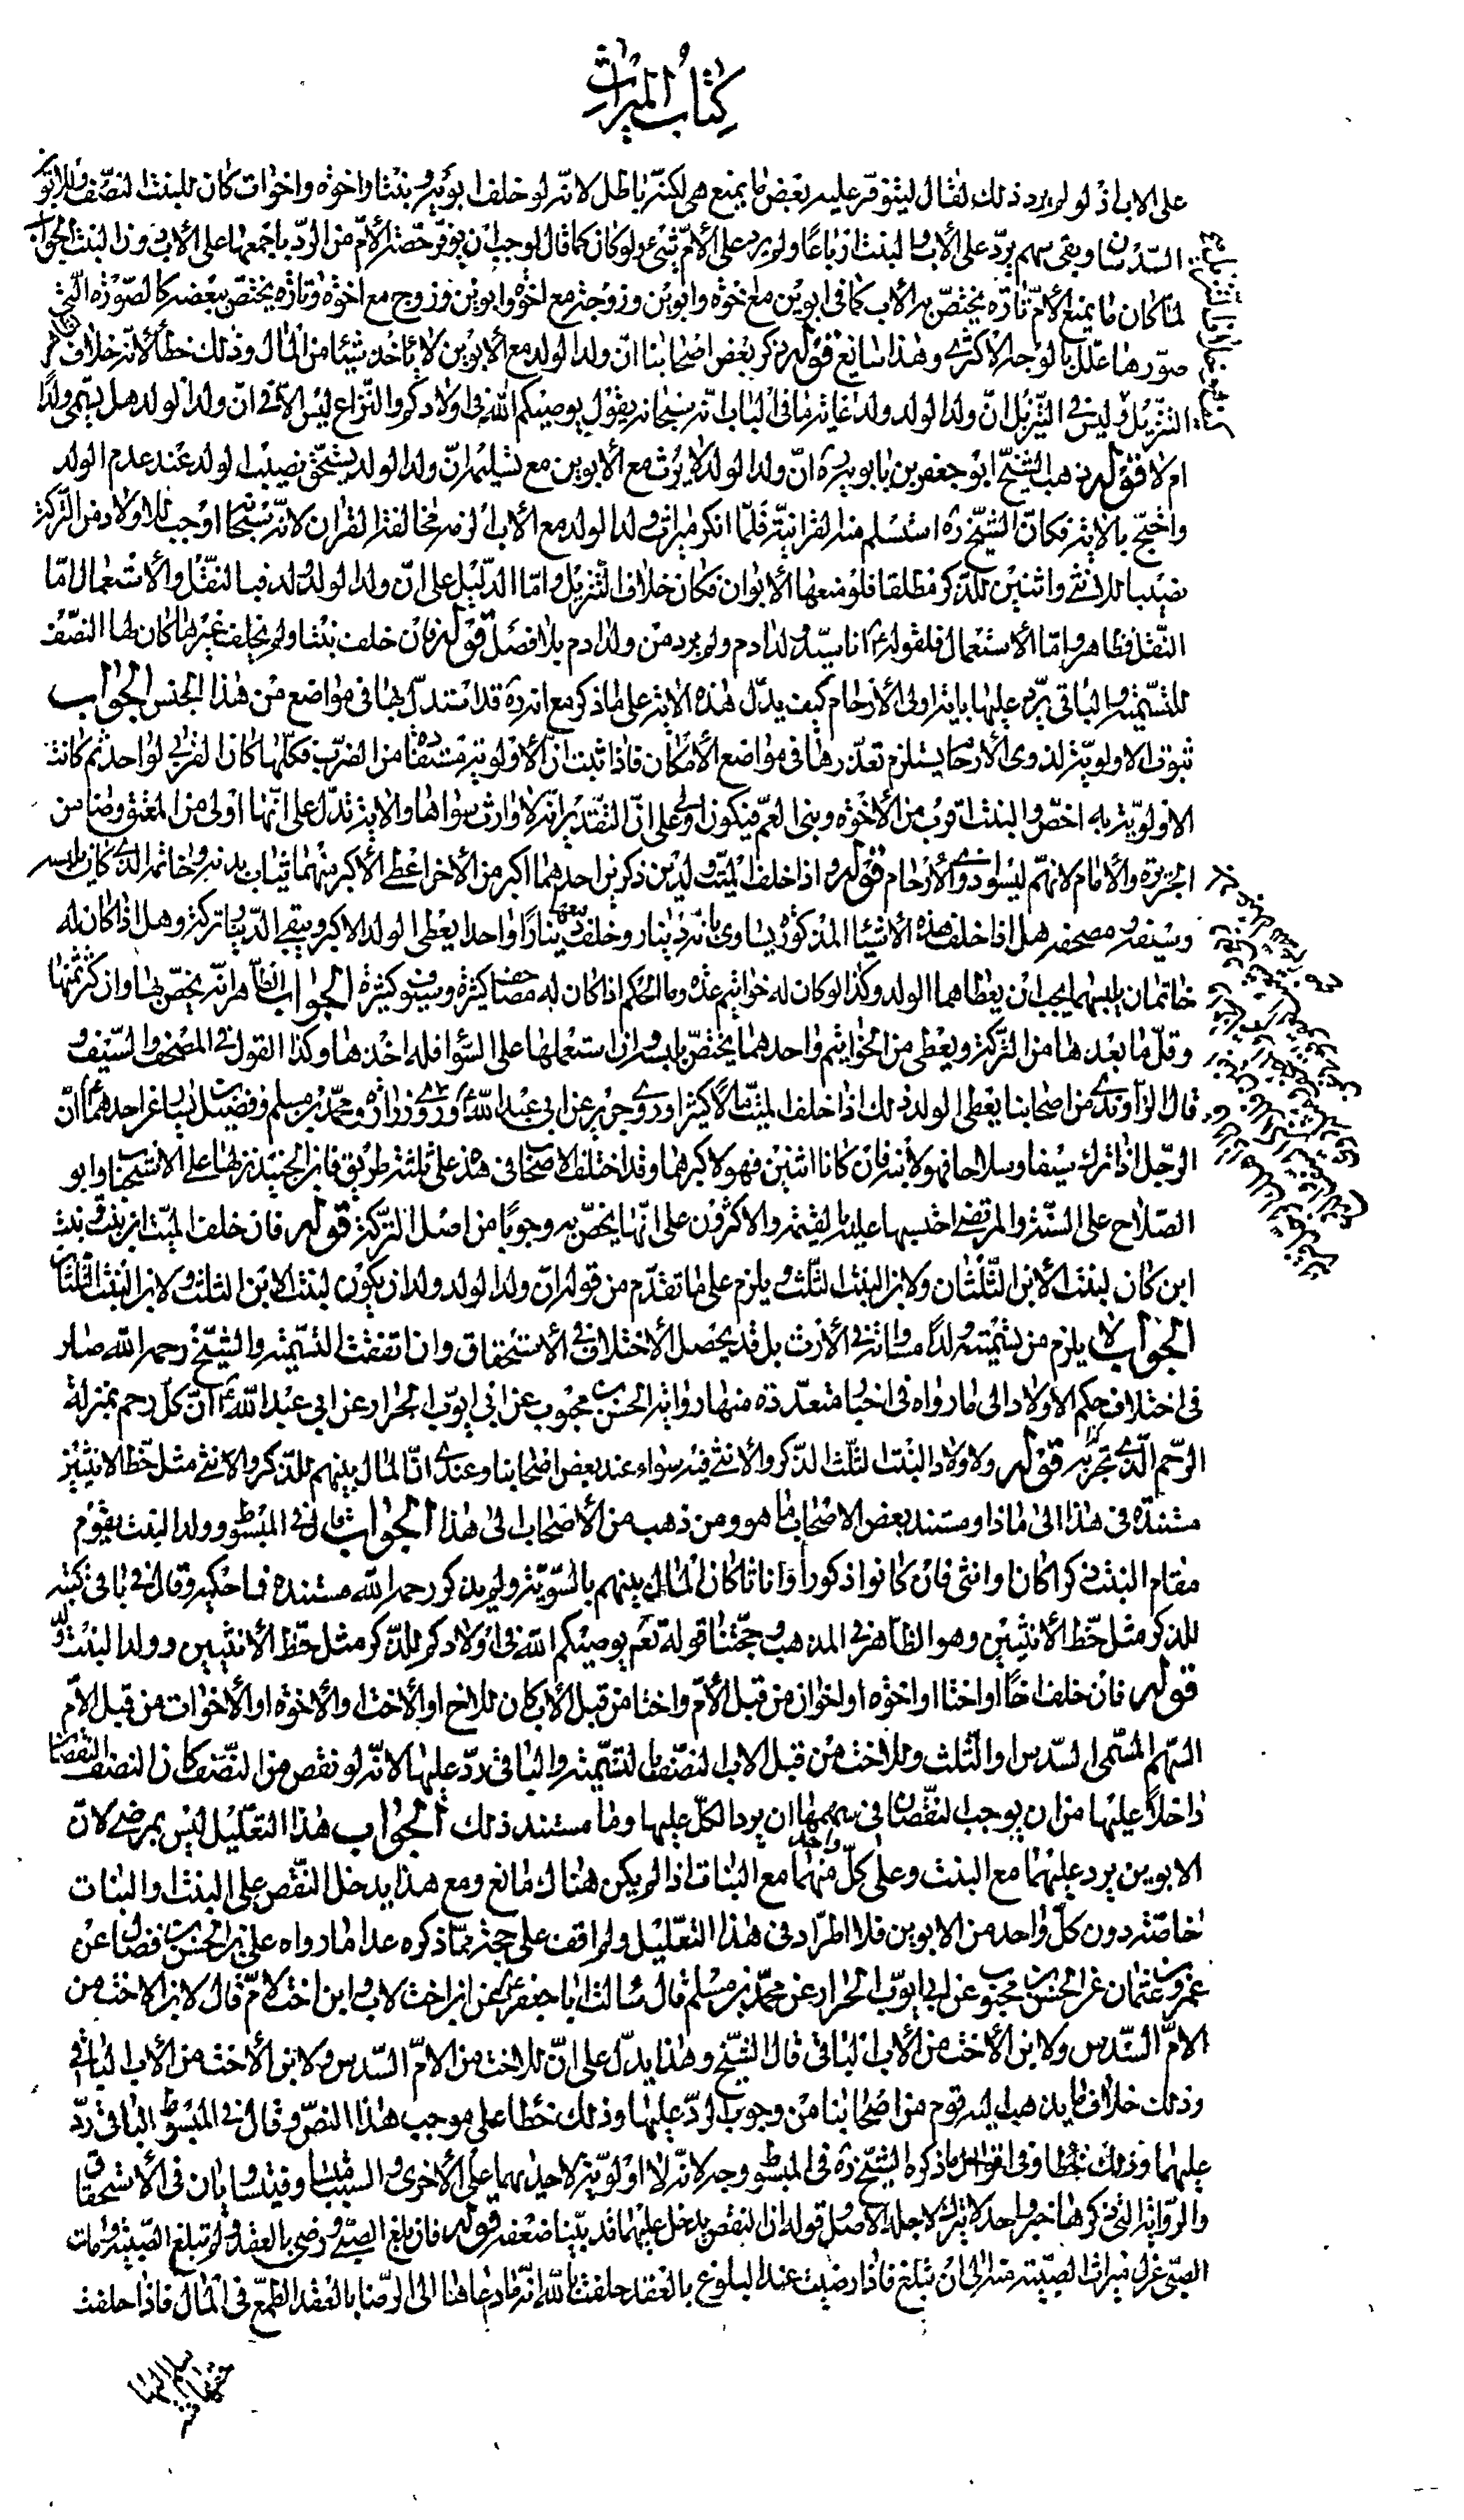 كتاب الميراث
على الاب اذ لو لم يرد ذلك لقال ليتوفر عليه بعض ما يمنع هي لكنه باطل لانه لو خلف ابويه و بنتا واخوة واخوات كان للبنت النصف وللابوين
السدسان ويبقى سهم يرد على الاب والبنت ارباعا ولم يرد على الام شيء ولو كان كما قال لوجب ان يوفر حصة الام من الرد باجمعها على الاب دون البنت الجواب
لما كان ما يمنع الام تارة يختص به الاب كما في ابوين مع اخوة وابوين وزوجة مع اخوة وابوين وزوج مع اخوة وتارة يختص ببعضه كالصورة التي
صورها علل بالوجه الاكثرى وهذا سايغ قوله ذكر بعض اصحابنا ان ولد الولد مع الابوين لا ياخذ شيئا من المال وذلك خطأ لانه خلاف
التنزيل وليس في التنزيل ان ولد الولد ولد غاية ما في الباب انه سبحانه يقول يوصيكم الله في اولادكم والنزاع ليس الا في ان ولد الولد هل يسمى ولدا
ام لا قوله ذهب الشيخ ابو جعفر بن بابويه ره ان ولد الولد لا يرث مع الابوين مع تسليم ان ولد الولد يستحق نصيب الولد عند عدم الولد
واحتج بالاية فكان الشيخ ره استسلم منه القرانية فلما انكر ميراث ولد الولد مع الاب الزمه مخالفة القران لانه سبحانه اوجب للاولاد من التركة
نصيبا للانثى واثنين للذكر مطلقا فلو منعها الابوان فكان خلاف التنزيل واما الدليل على ان ولد الولد ولد فبالنقل والاستعمال اما
النقل فظاهر واما الاستعمال فلقوله ع انا سيد ولد ادم ولم يرد من ولد ادم بلا فصل قوله فان خلف بنتا ولم يخلف غيرها كان لها النصف
للتسمية والباقي يرد عليها باية اولى الارحام كيف يدل هذه الاية على ما ذكر مع انه ره قد استدل بها في مواضع من هذا الجنس الجواب
ثبوت الاولوية لذوى الارحام يستلزم تعذرها في مواضع الامكان فاذا ثبت ان الاولوية مستفادة من القرب فكلها كان القربى لواحد ثم كانت
الاولوية به اخص والبنت اقرب من الاخوة وبنى العم فيكون اولى وعلى ان التقدير انه لا وارث سواها والاية تدل على انها اولى من المعتق وضامن
الجريرة والامام لانهم ليسوا ذوى الارحام قوله واذا خلف الميت ولدين ذكرين احدهما اكبر من الاخر اعطى الاكبر منهما ثياب بدنه وخاتمه الذي كان يلبسه
وسيفه ومصحفه هل اذا خلف هذه الاشياء المذكورة يساوى مائة دينار وخلف معها دينارا واحدا يعطى الولد الاكبر ويبقى الدينار تركة وهل اذا كان له
خاتمان يلبسهما يجب ان يعطاهما الولد وكذا لو كان له خواتيم عدة وما الحكم اذا كان له مصاحف كثيرة وسيوف كثيرة الجواب الظاهر انه يختص بها وان كثر ثمنها
وقل ما بعدها من التركة ويعطى من الخواتيم واحدهما يختص بلبسه وان استعملها على السواء فله احدها وكذا القول في المصحف والسيف
قال الراوندي من اصحابنا يعطى الولد ذلك اذا خلف الميت مالا كثيرا وروى حريز عن ابي عبد الله ع وروى زرارة ومحمد بن مسلم وفضيل بن يسار عن احدهما ع ان
الرجل اذا ترك سيفا وسلاحا فهو لابنه فان كانا اثنين فهو لاكبرهما وقد اختلف الاصحاب في هذه على ثلثة طريق فابن الجنيد نزلها على الاستحباب وابو
الصلاح على السنة والمرتضى احتسبها عليه بالقيمة والاكثرون على انها يختص به وجوبا من اصل التركة قوله فان خلف الميت ابن بنت وبنت
ابن كان لبنت الابن الثلثان ولابن البنت الثلث ويلزم على ما تقدم من قوله ان ولد الولد ولد ان يكون لبنت الابن الثلث ولابن البنت الثلثان
الجواب لا يلزم من تسميته ولدا مساواته في الارث بل قد يحصل الاختلاف في الاستحقاق وان اتفقت التسمية والشيخ رحمه الله صار
في اختلاف حكم الاولاد الى ما رواه في اخبار متعددة منها رواية الحسن بن محبوب عن ابي ايوب الخزاز عن ابي عبد الله ع ان كل رحم بمنزلة
الرحم الذي تجر به قوله ولاولاد البنت الثلث الذكر والانثى فيه سواء عند بعض اصحابنا وعندى ان المال بينهم للذكر والانثى مثل حظ الانثيين
مستنده في هذا الى ماذا ومستند بعض الاصحاب ما هو ومن ذهب من الاصحاب الى هذا الجواب قال في المبسوط وولد البنت يقوم
مقام البنت ذكرا كان او انثى فان كانوا ذكورا او اناثا كان المال بينهم بالسوية ولم يذكر رحمه الله مستنده فيما حكيه وقال في باقي كتبه
للذكر مثل حظ الانثيين وهو الظاهر في المذهب حجتنا قوله تعم يوصيكم الله في اولادكم للذكر مثل حظ الانثيين وولد البنت ولد
قوله فان خلف اخا او اختا او اخوة او اخوات من قبل الام واختا من قبل الاب كان للاخ او الاخت والاخوة او الاخوات من قبل الام
السهم المسمى السدس او الثلث وللاخت من قبل الاب النصف بالتسمية والباقي رد عليها لانه لو نقص من النصف كان النقصان
داخلا عليها من ان يوجب النقصان في سهمها ان يرد الكل عليها وما مستند ذلك الجواب هذا التعليل ليس بمرضى لان
الابوين يرد عليهما مع البنت وعلى كل واحد منهما مع البنات اذا لم يكن هناك مانع ومع هذا يدخل النقص على البنت والبنات
خاصة دون كل واحد من الابوين فلا اطراد في هذا التعليل ولم اقف على حجة مما ذكره عدا ما رواه على بن الحسن بن فضال عن
عمرو بن عثمان عن الحسن بن محبوب عن ابي ايوب الخزاز عن محمد بن مسلم قال سالت ابا جعفر ع عن ابن اخت لاب وابن اخت لام قال لابن الاخت من
الام السدس ولابن الاخت من الاب الباقي قال الشيخ وهذا يدل على ان للاخت من الام السدس ولابن الاخت من الاب الباقي
وذلك خلاف ما يذهب اليه قوم من اصحابنا من وجوب الرد عليها وذلك خطأ على موجب هذا النص وقال في المبسوط الباقي رد
عليهما وذلك خطأ وفي ما ذكره الشيخ ره في المبسوط وجه لانه لا اولوية لاحديهما على الاخرى والسبب فيتساويان في الاستحقاق
والرواية التي ذكرها خبر واحد لا يترك لاجله الاصول قوله ان النقص يدخل عليهما قد بينا ضعفه قوله فان بلغ الصبى ورضى بالعقد ولم تبلغ الصبية ومات
الصبى عزل ميراث الصبية منه الى ان تبلغ فاذا رضيت عند البلوغ بالعقد حلفت بالله انه ما دعاها الى الرضا بالعقد الطمع في المال فاذا حلفت